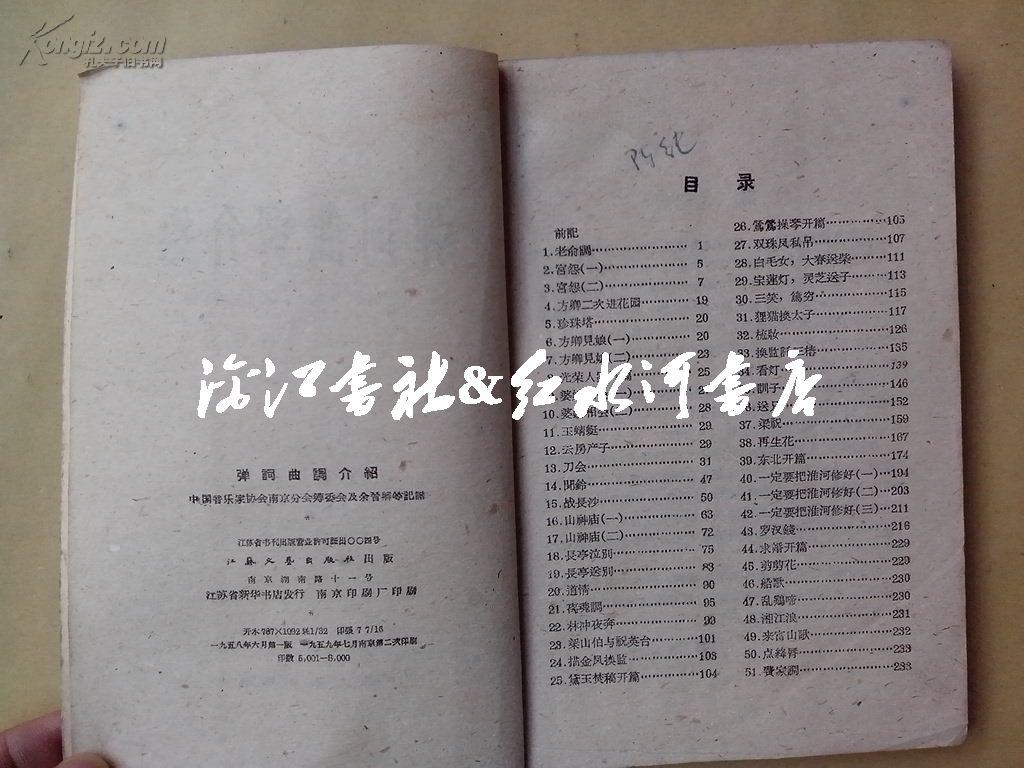 Kongfz.com
孔夫子旧书网
弹詞曲調介紹
中国音乐家协会南京分会筹委会及金蒼編等記譜
江苏省书刊出版营业許可証出〇〇四号
江苏文艺出版社出版
南京湖南路十一号
江苏省新华书店发行 南京印刷厂印刷
开木787×1092純1/32 印張7 7/16
一九五八年六月第一版 一九五九年七月南京第二次印刷
印数5,001—8,000
目录
前記
1.老俞調 1
2.宮怨(一) 5
3.宮怨(二) 7
4.方卿二次进花园 19
5.珍珠塔 20
6.方卿見娘(一) 20
7.方卿見娘(二) 23
光荣人 25
10.婆 相会(二) 28
11.玉蜻蜓 29
12.云房产子 29
13.刀会 31
14.聞鈴 47
15.战長沙 50
16.山神庙(一) 63
17.山神庙(二) 72
18.長亭泣別 75
19.長亭送别 83
20.道情 90
21.夜嘆調 95
22.林冲夜奔 99
23.梁山伯与祝英台 101
24.描金凤換監 103
25.黛玉焚稿开篇 104
26.鶯鶯操琴开篇 105
27.双珠凤私吊 107
28.白毛女,大春送柴 111
29.宝莲灯,灵芝送子 113
30.三笑,篤穷 115
31.狸猫换太子 117
32.梳妝 126
33.换监 135
34.看灯 139
訓子 146
送 152
37.梁祝 159
38.再生花 167
39.东北开篇 174
40.一定要把淮河修好(一) 194
41.一定要把淮河修好(二) 203
42.一定要把淮河修好(三) 211
43.罗汉錢 216
44.求婚开篇 229
45.剪剪花 229
46.船歌 230
47.乱鷄啼 231
48.湘江浪 231
49.来富山歌 232
50.点絳唇 233
51.費家調 233
渝江書社&红水河書店